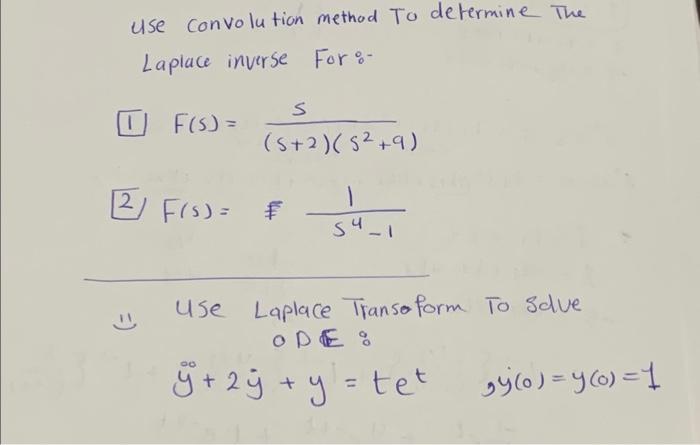 use convolution method To determine The
Laplace inverse For :-
1 F(s) = s / (s+2)(s²+9)
2 F(s) = 1 / s⁴-1
use Laplace Transform To solve
ODE :
ÿ + 2ẏ + y = te^t , ẏ(0) = y(0) = 1